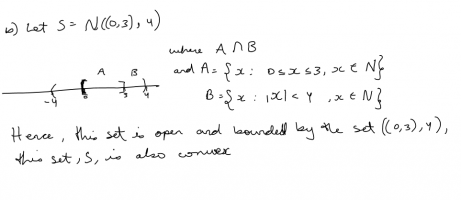 b) Let S = N((0,3), 4)
where A ∩ B
and A = {x : 0 ≤ x ≤ 3, x ∈ N}
B = {x : |x| < 4, x ∈ N}
A B
-4 0 3 4
Hence, this set is open and bounded by the set ((0,3), 4),
this set, S, is also convex